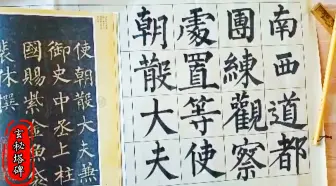 南西道都
團練觀察
處置等使
朝散大夫
使朝散大夫兼
御史中丞上柱
國賜紫金魚袋
裴休撰
玄秘塔碑